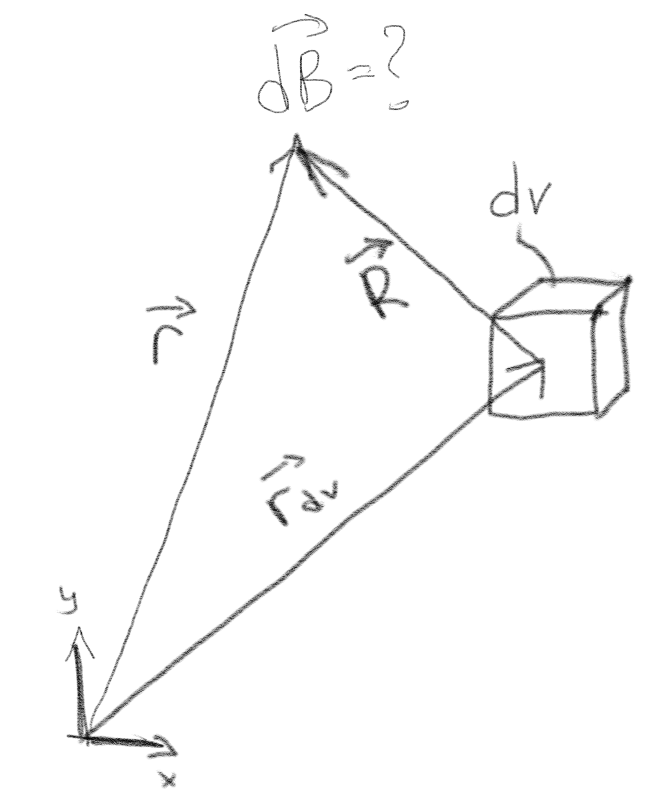 d⃗B = ?
dv
R⃗
r⃗
r⃗dv
y
x